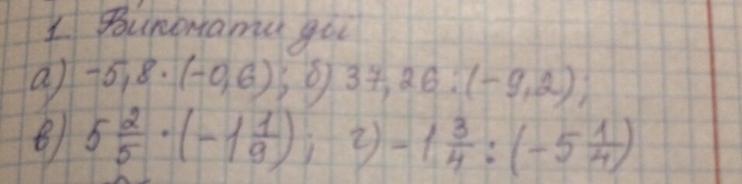 1. Виконати дії
а) -5,8 · (-0,6); б) 37,26 : (-9,2);
в) 5 2/5 · (-1 1/9); г) -1 3/4 : (-5 1/4)